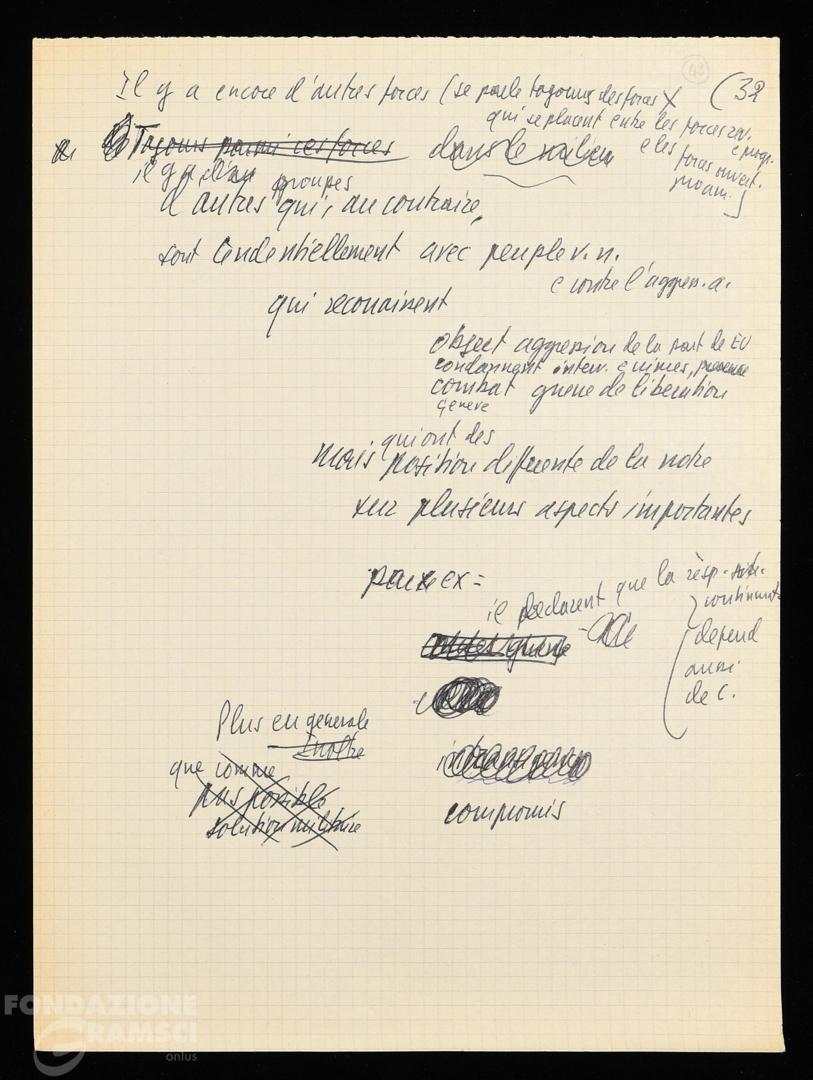 48
(32
Il y a encore d'autres forces (je parle toujours des forces X
qui se placent entre les forces rev.
e progr.
e les forces ouvert.
proam.)
Toujours parmi ces forces dans le milieu
il y a groupes
d'autres qui, au contraire,
sont tendentiellement avec peuple v.n.
e contre l'aggres. a.
qui reconaissent
object aggression de la part de EU
condannent interv. e crimes, presence
combat guerre de liberation
geneve
qui ont des
mais position differente de la notre
sur plusieurs aspects importantes
par ex =
il declarent que la resp.
continuat.
depend
aussi
de C.
Plus en generale
Inoltre
que comme
pas possible
solution militaire
compromis
FONDAZIONE
GRAMSCI
onlus